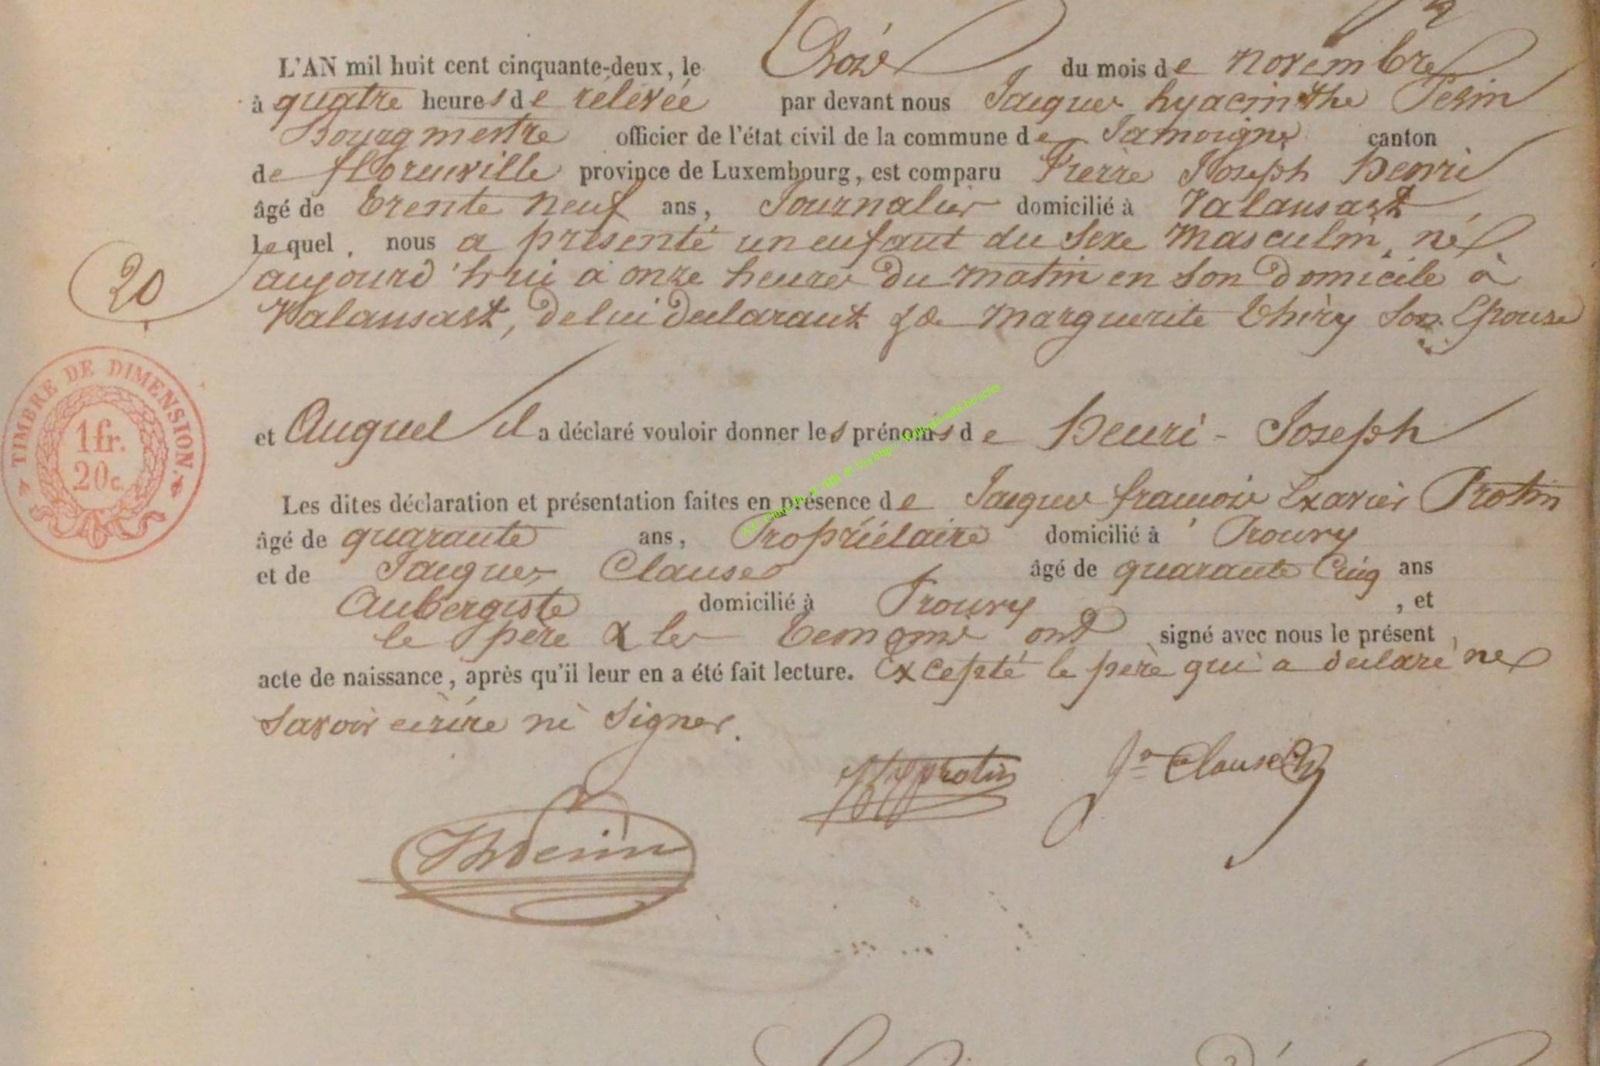 L'AN mil huit cent cinquante-deux, le Trois du mois de novembre
à quatre heures de rélévée par devant nous Jacques hyacinthe Perin
Bourgmestre officier de l'état civil de la commune de Jamoigne canton
de florenville province de Luxembourg, est comparu Pierre Joseph Henri
âgé de trente neuf ans, Journalier domicilié à Valansart
lequel nous a présenté un enfant du sexe Masculin, né
20
aujourd'hui à onze heures du matin en son domicile à
Valansart, de lui declarant & de Marguerite Thiry Son Epouse
TIMBRE DE DIMENSION.
1 fr.
20 c.
et Auquel il a déclaré vouloir donner les prénoms de Henri - Joseph
Les dites déclaration et présentation faites en présence de Jacques francois Exavier Protin
âgé de quarante ans, Propriétaire domicilié à Prouvy
et de Jacques Clause âgé de quarante Cinq ans
Aubergiste domicilié à Prouvy , et
le père & les temoins ont signé avec nous le présent
acte de naissance, après qu'il leur en a été fait lecture. Excepté le père qui a declaré ne
savoir écrire ni signer.
protin
Jq Clause
JhPerin